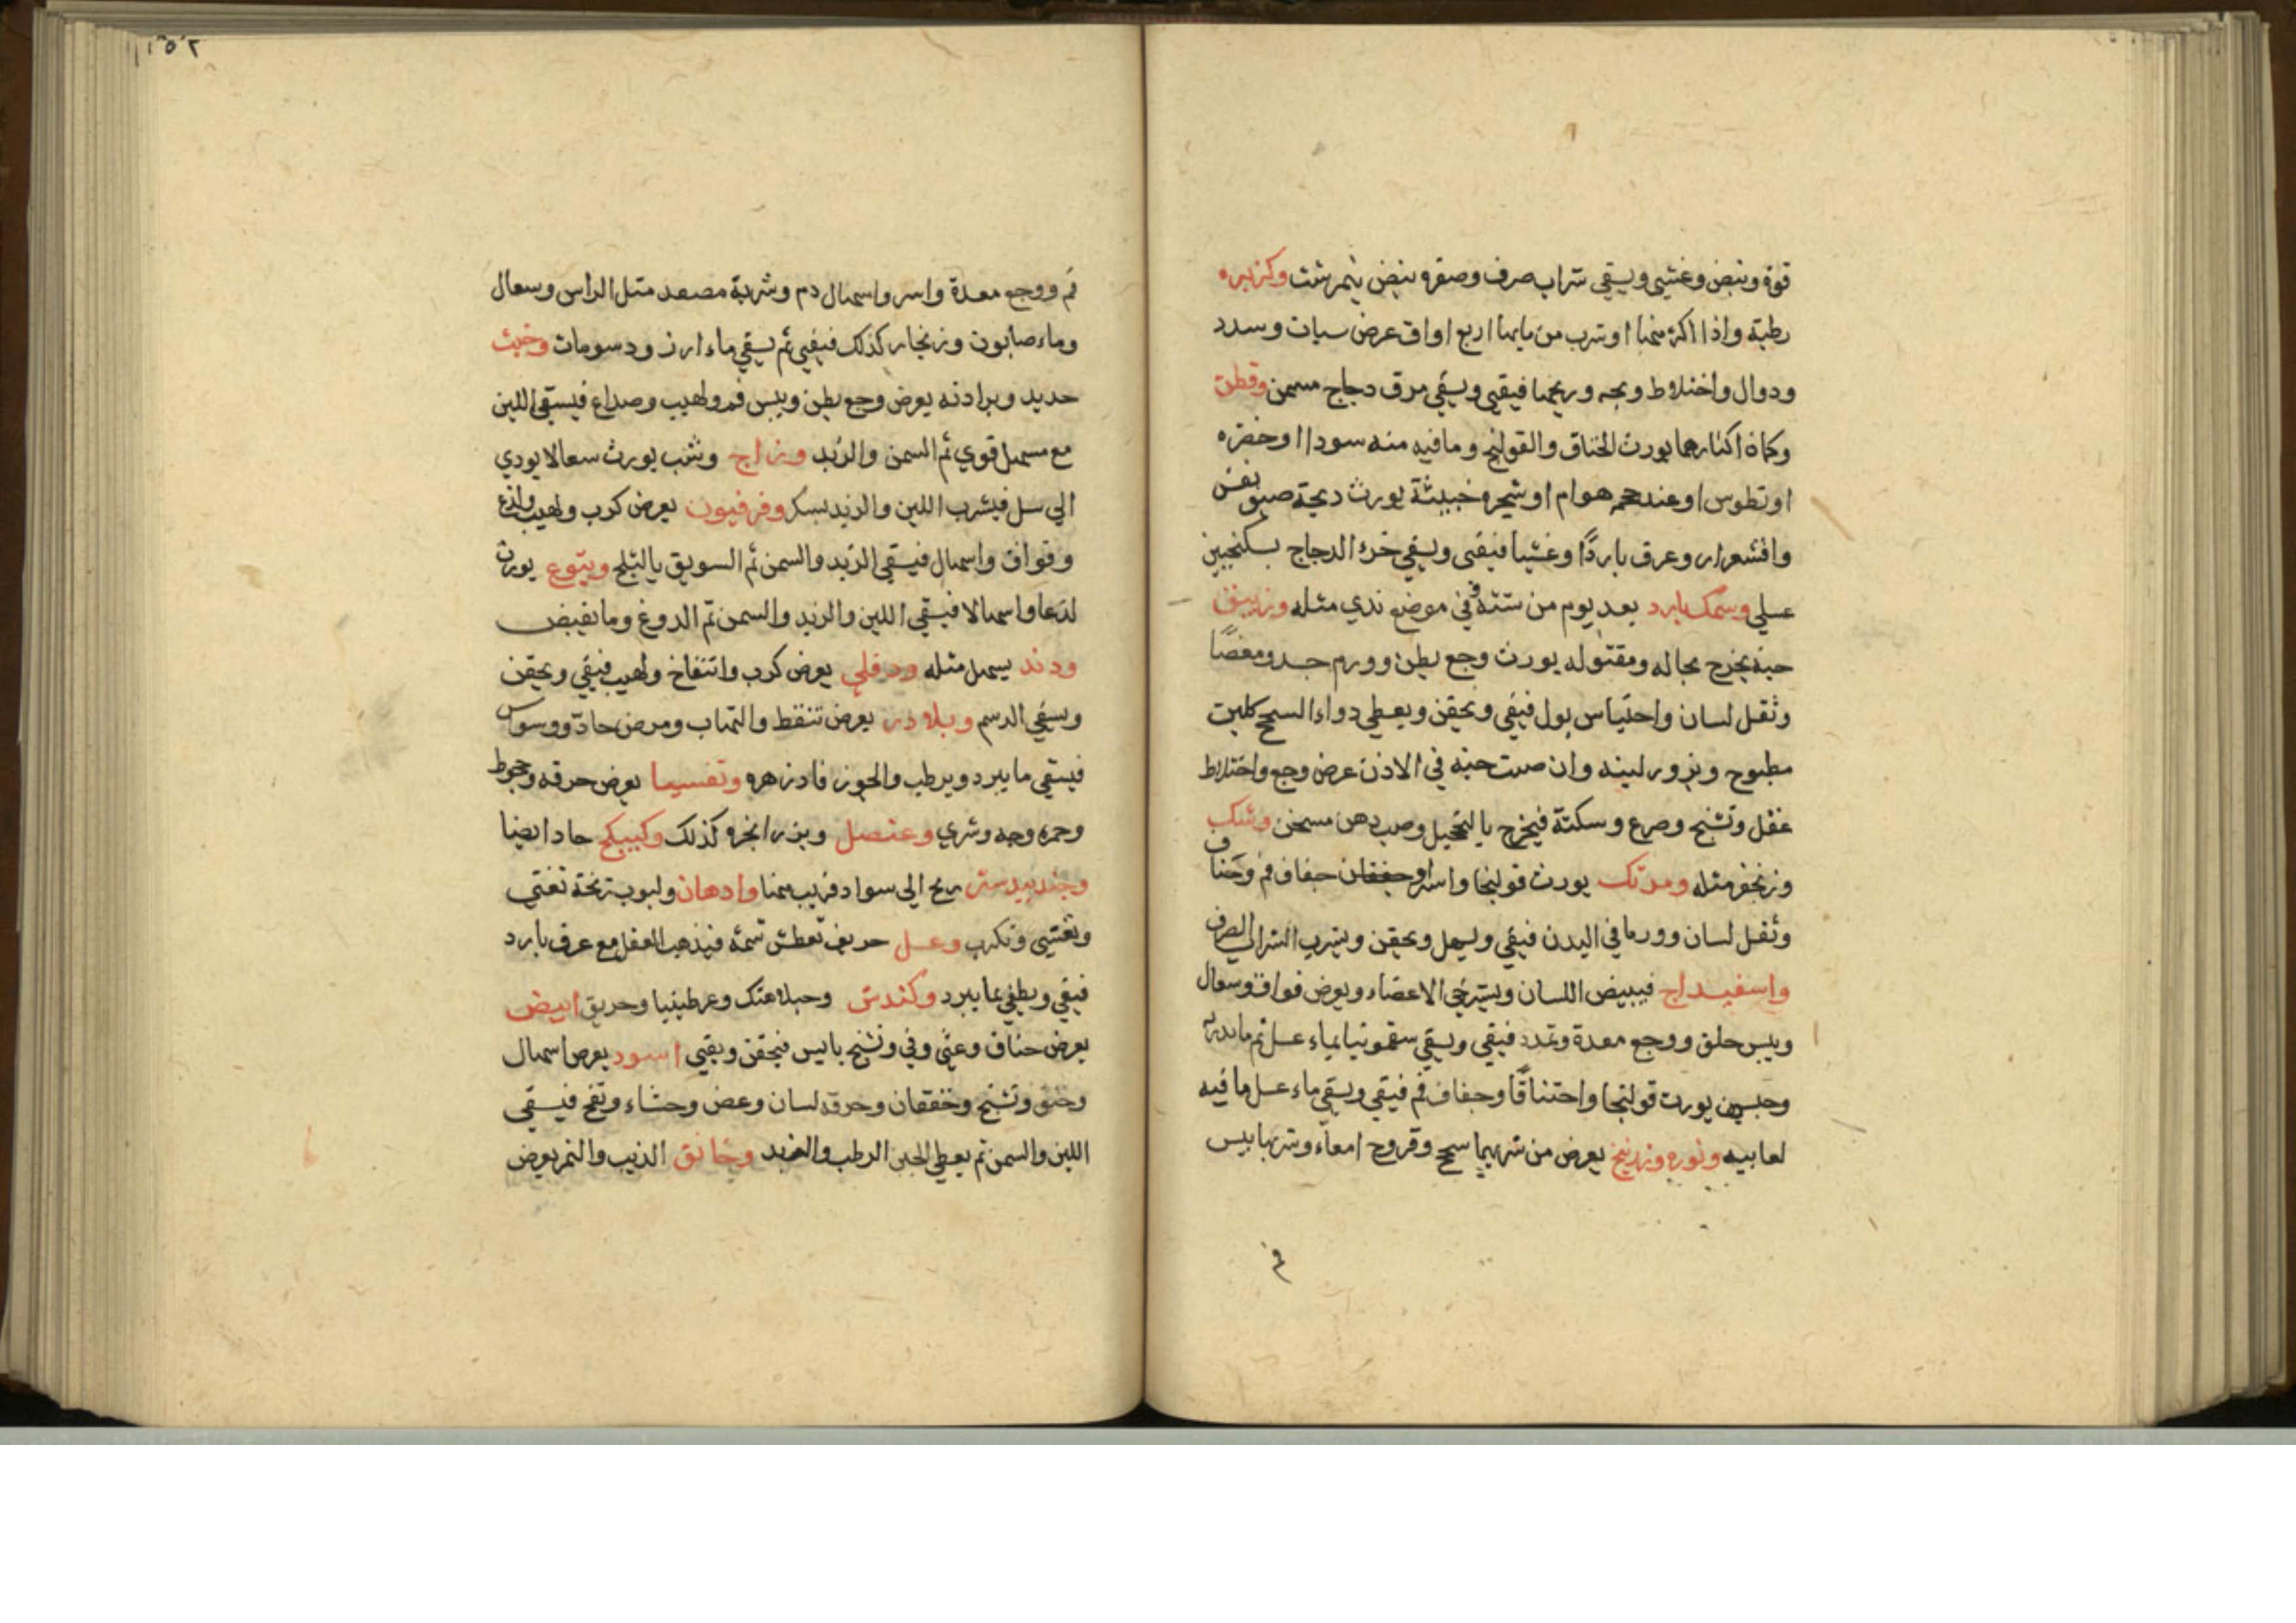 قوة ونبض وغشي ويسقي شراب صرف وصفره بيض نيمرشت وكزبره
رطبة واذا اكثر منها او شرب من مايها اربع اواق عرض سبات وسدد
ودوال واختلاط وبحه وريحها فيقيي ويسقي مرق دجاج مسمن وقطن
وكماة اكثارهما يورث الخناق والقولنج وما فيه منه سودا او خضره
او تطوس او عند حجر هوام او شجره خبيثة يورث ذبحة ضيق نفس
واقشعرار وعرق باردًا وغشيا فيقيي ويسقي خرء الدجاج بسكنجبين
عسلي وسمك بارد بعد يوم من شتة في موضع ندي مثله وزيبق
حيه يخرج بحاله ومقتوله يورث وجع بطن وورم جسد ومغصًا
وثقل لسان واحتباس بول فيقي ويحقن ويعطي دواء السحج كلبن
مطبوح وبزور لينه وان صبت حيه في الاذن عرض وجع واختلاط
عقل وتشنج وصرع وسكتة فيخرج بالتحيل وصب دهن مسخن وشك
وزنجفر مثله ومرتك يورث قولنجا واسر او خفقان جفاف فم وخناق
وثقل لسان وورما في البدن فيقي ويسهل ويحقن ويشرب الشراب الصرف
واسفيداج فيبيض اللسان ويسترخي الاعضاء ويعرض فواق وسعال
ويبس حلق ووجع معدة وتمدد فيقي ويسقي سقمونيا بماء عسل ثم ما يدر
وجبسين يورث قولنجا واختناقًا وجفاف فم فيقي ويسقي ماء عسل ما فيه
لعابيه ونوره وزرنيخ يعرض من شربهما سحج وقروح امعاء وشربها يبس
١٥٢
فم ووجع معدة واسر واسهال دم وشربة مصعد مثل الراس وسعال
وماء صابون وزنجار كذلك فيقيي ثم يسقي ماء ارز ودسومات وخبث
حديد وبرادته يعرض وجع بطن ويبس فم ولهيب وصداع فيسقي اللبن
مع مسهل قوي ثم السمن والزبد وزاج وشب يورث سعالا يودي
الي سل فيشرب اللبن والزبد بسكر وفرفيون يعرض كرب ولهيب ولذع
وفواق واسهال فيسقي الزبد والسمن ثم السويق بالثلج ويتوع يورث
لذعا واسهالا فيسقي اللبن والزبد والسمن ثم الدوغ وما يقبض
ودند يسهل مثله ودفلي يعرض كرب وانتفاخ ولهيب فيقي ويحقن
ويسقي الدسم وبلادر يعرض تنقط والتهاب ومرض حاد ووسواس
فيسقي ما يبرد ويرطب والجوز فادزهره وتفسيما يعرض حرقه وجحوظ
وحمره وجه وشري وعنصل وبزر انجره كذلك وكبيكج حاد ايضا
وجندبيدستر ريح الي سواد قريب سمنا وادهان ولبوب زنخة تغثي
وتغشي وتكرب وعسل حريف تعطش شمه فيذهب العقل مع عرق بارد
فيقي ويطفي بما يبرد وكندش وجبلاهنك وعرطينيا وخربق ابيض
يعرض خناق وغثي وقي وتشنج يابس فيحقن ويقيي اسود يعرض اسهال
وخنق وتشنج وخفقان وحرقه لسان وعض وجشاء ونفخ فيسقي
اللبن والسمن ثم يعطي الجبن الرطب والزبد وخانق الذيب والنمر يعرض